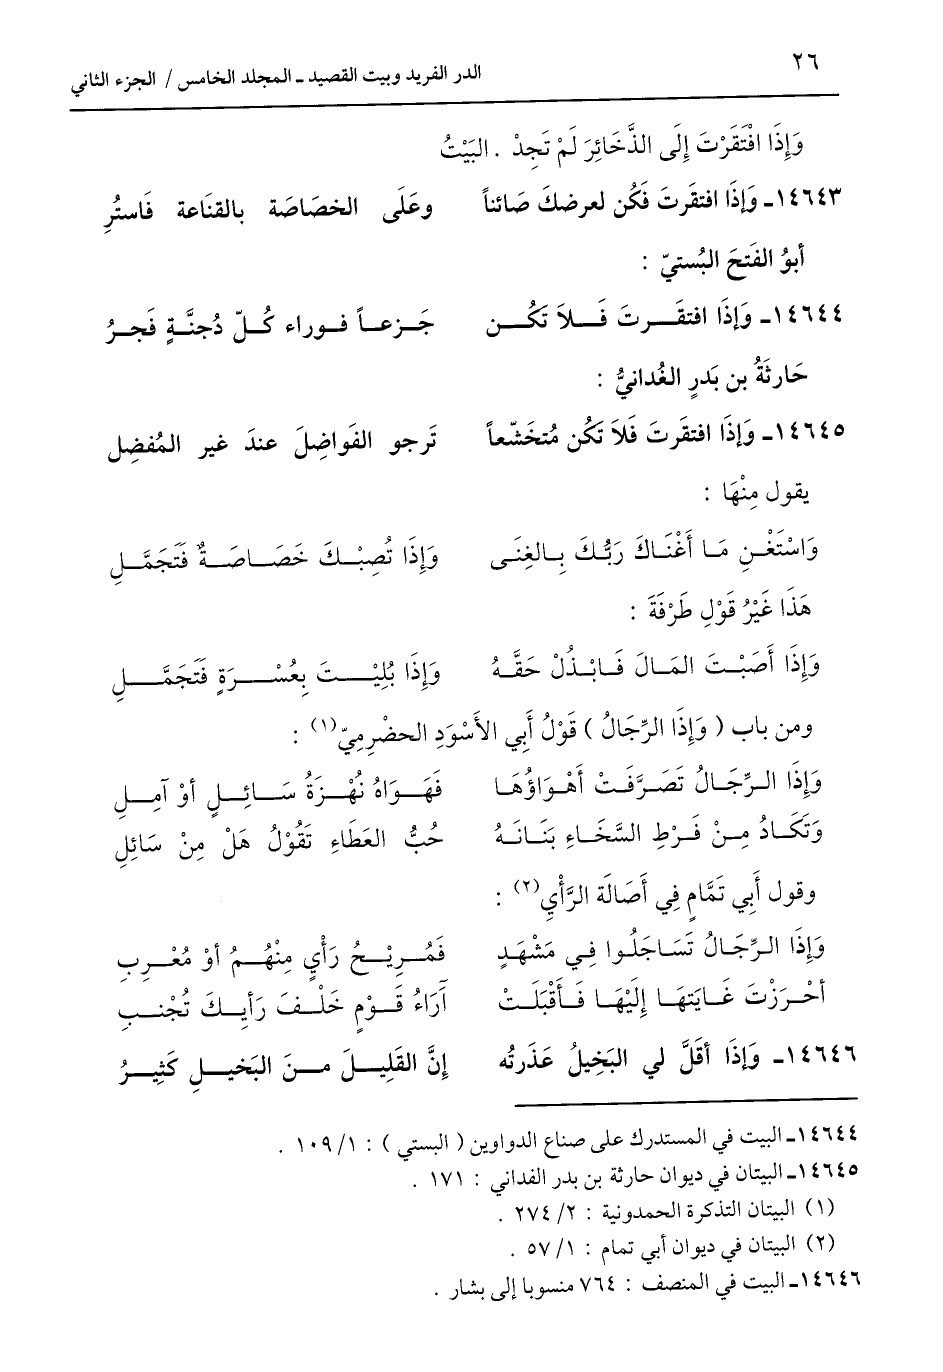 ٢٦
الدر الفريد وبيت القصيد ـ المجلد الخامس / الجزء الثاني
وَإِذَا افْتَقَرْتَ إِلَى الذَّخَائِرَ لَمْ تَجِدْ . البَيْتُ
١٤٦٤٣ـ وَإِذَا افتقَرتَ فَكُن لعرضكَ صَائناً وعَلَى الخصَاصَة بالقنَاعة فَاستُرِ
أبوُ الفَتحَ البُستيّ :
١٤٦٤٤ـ وَإِذَا افتقَرتَ فَلاَ تَكُن جَزعاً فوراء كُلّ دُجنَّةٍ فَجرُ
حَارثَةُ بن بَدرٍ الغُدانيُّ :
١٤٦٤٥ـ وَإِذَا افتقَرتَ فَلاَ تَكُن مُتخشّعاً تَرجو الفَواضِلَ عندَ غير المُفضِلِ
يقول مِنْهَا :
وَاسْتَغْنِ مَا أَغْنَاكَ رَبُّكَ بِالغِنَى وَإِذَا تُصِبْكَ خَصَاصَةٌ فَتَجَمَّلِ
هَذَا غَيْرُ قَوْلِ طَرْفَةَ :
وَإِذَا أَصَبْتَ المَالَ فَابْذُلْ حَقَّهُ وَإِذَا بُلِيْتَ بِعُسْرَةٍ فَتَجَمَّلِ
ومن باب ( وَإِذَا الرِّجَالُ ) قَوْلُ أَبِي الأَسْوَدِ الحضْرمِيّ(١) :
وَإِذَا الرِّجَالُ تَصَرَّفَتْ أَهْوَاؤُهَا فَهَوَاهُ نُهْزَةُ سَائِلٍ أوْ آمِلِ
وَتَكَادُ مِنْ فَرْطِ السَّخَاءِ بَنَانَهُ حُبُّ العَطَاءِ تَقُوْلُ هَلْ مِنْ سَائِلِ
وقول أَبِي تَمَّامٍ فِي أَصَالَة الرَّأْيِ(٢) :
وَإِذَا الرِّجَالُ تَسَاجَلُوا فِي مَشْهَدٍ فَمُرِيْحُ رَأْيٍ مِنْهُمُ أوْ مُعْرِبِ
أحْرَزْتَ غَايَتهَا إِلَيْهَا فَأَقْبَلَتْ آرَاءُ قَوْمٍ خَلْفَ رَأيِكَ تُجْنبِ
١٤٦٤٦ـ وَإِذَا أقَلَّ لي البَخِيلُ عَذَرتُه إنَّ القَليلَ منَ البَخيلِ كَثِيرُ
١٤٦٤٤ـ البيت في المستدرك على صناع الدواوين ( البستي ) : ١/ ١٠٩ .
١٤٦٤٥ـ البيتان في ديوان حارثة بن بدر الفداني : ١٧١ .
(١) البيتان التذكرة الحمدونية : ٢/ ٢٧٤ .
(٢) البيتان في ديوان أبي تمام : ١/ ٥٧ .
١٤٦٤٦ـ البيت في المنصف : ٧٦٤ منسوبا إلى بشار .